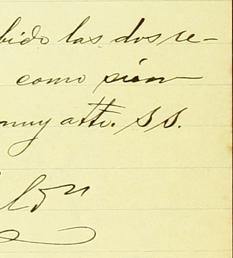 bido las dos re-
como siem
muy atto. SS.